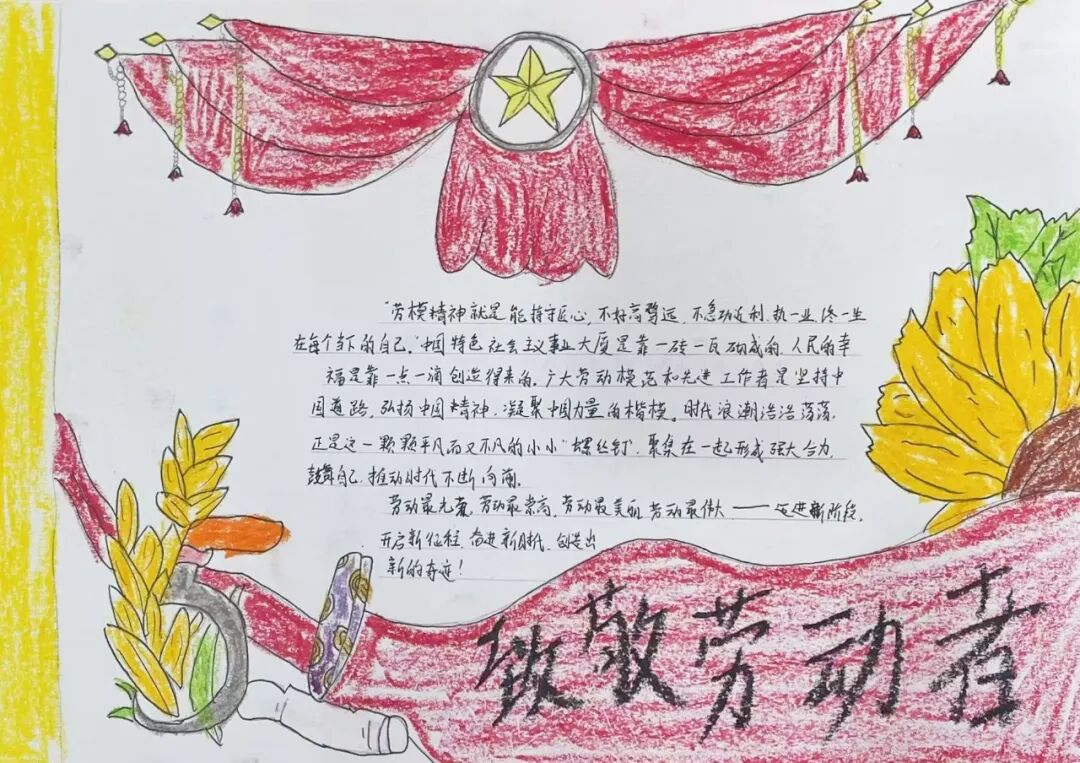 "劳模精神就是能持守匠心,不好高骛远,不急功近利,执一业,终一生
在每个当下的自己。"中国特色社会主义事业大厦是靠一砖一瓦砌成的,人民的幸
福是靠一点一滴创造得来的。广大劳动模范和先进工作者是坚持中
国道路,弘扬中国精神,凝聚中国力量的楷模。时代浪潮浩浩荡荡,
正是这一颗颗平凡而又不凡的小小"螺丝钉",聚集在一起形成强大合力,
鼓舞自己,推动时代不断向前。
劳动最光荣,劳动最崇高,劳动最美丽,劳动最伟大——迈进新阶段,
开启新征程,奋进新时代,创造出
新的奇迹!
致敬劳动者